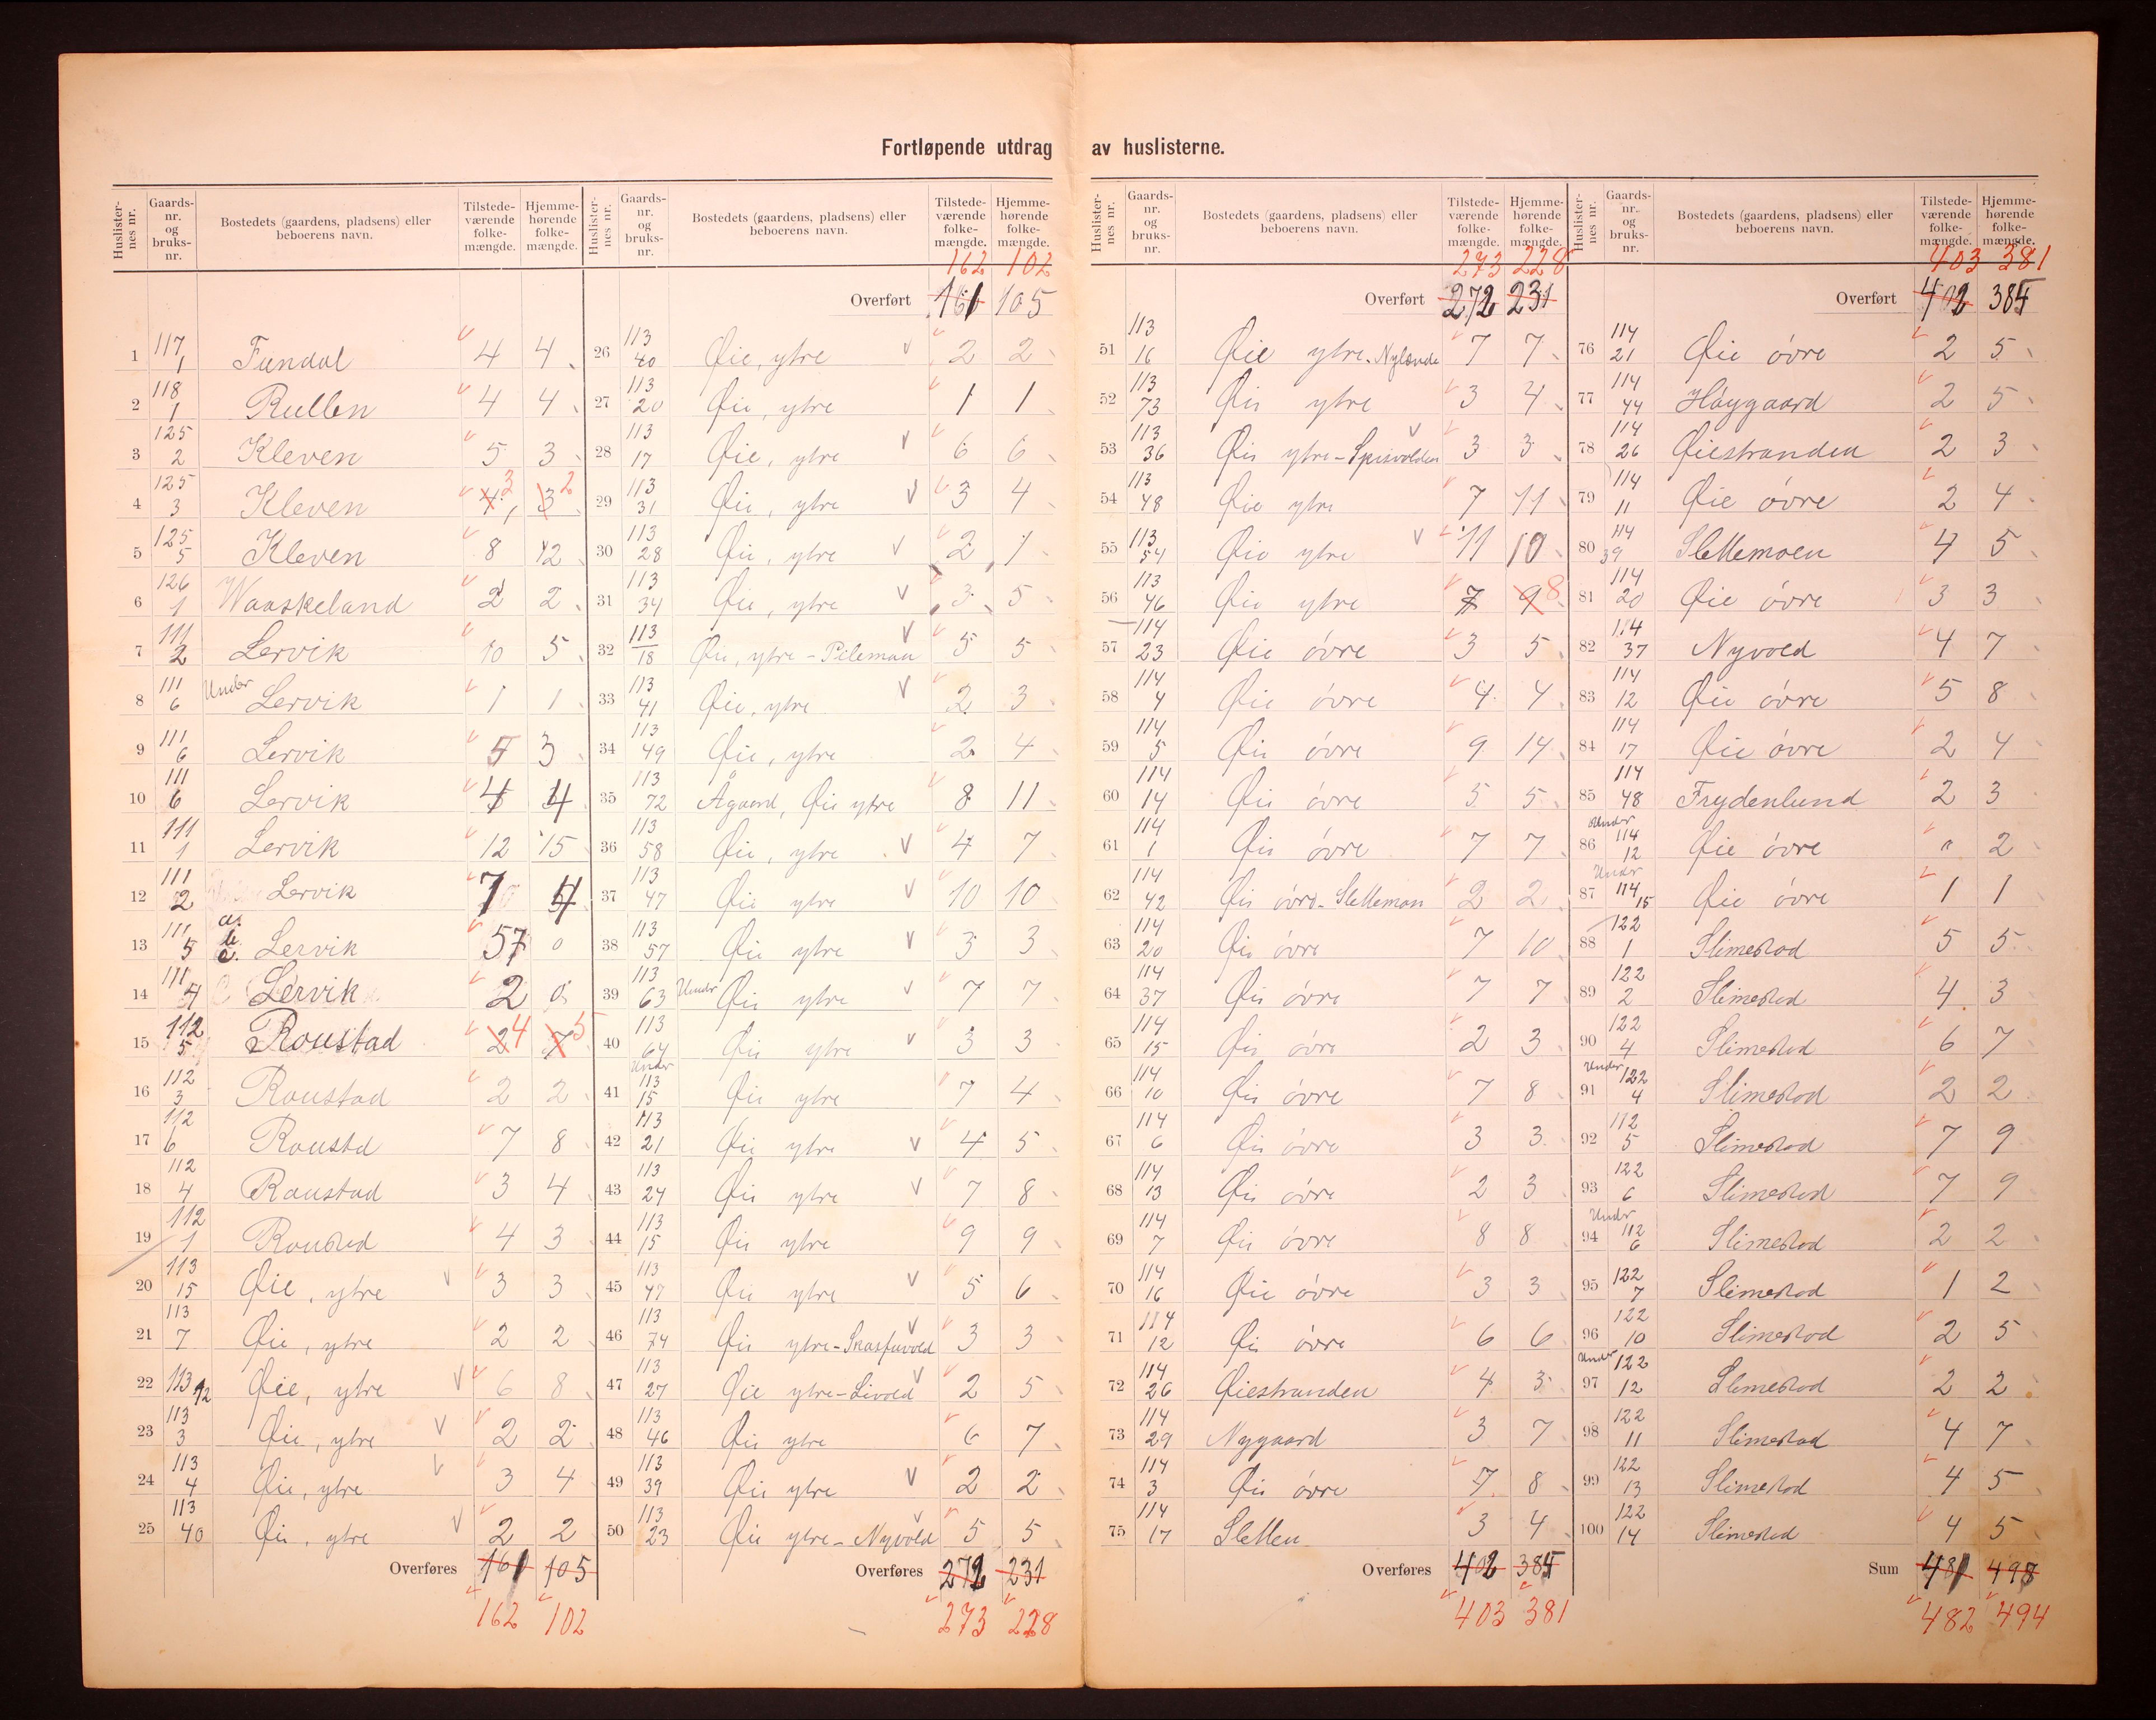 Fortløpende utdrag av huslisterne.
Huslisternes nr. Gaards-nr. og bruks-nr. Bostedets (gaardens, pladsens) eller beboerens navn. Tilstedeværende folkemængde. Hjemmehørende folkemængde.
1 117 1 Fundal 4 4
2 118 1 Rullen 4 4
3 125 2 Kleven 5 3
4 125 3 Kleven 4 3 3 2
5 125 5 Kleven 8 12
6 126 1 Waaskeland 2 2
7 111 2 Lervik 10 5
8 111 6 Under Lervik 1 1
9 111 6 Lervik 5 3
10 111 6 Lervik 4 4
11 111 1 Lervik 12 15
12 111 2 Lervik 7 4
13 111 5 a. b. c. Lervik 57 0
14 111 4 Lervik 2 0
15 112 5 Roustad 2 4 7 5
16 112 3 Roustad 2 2
17 112 6 Roustd 7 8
18 112 4 Roustad 3 4
19 112 1 Roustad 4 3
20 113 15 Øie, ytre 3 3
21 113 7 Øie, ytre 2 2
22 113 12 Øie, ytre 6 8
23 113 3 Øie, ytre 2 2
24 113 4 Øie, ytre 3 4
25 113 40 Øie, ytre 2 2
Overføres 161 105
162 102
Huslisternes nr. Gaards-nr. og bruks-nr. Bostedets (gaardens, pladsens) eller beboerens navn. Tilstedeværende folkemængde. Hjemmehørende folkemængde.
162 102
Overført 161 105
26 113 40 Øie, ytre 2 2
27 113 20 Øie, ytre 1 1
28 113 17 Øie, ytre 6 6
29 113 31 Øie, ytre 3 4
30 113 28 Øie, ytre 2 1
31 113 34 Øie, ytre 3 5
32 113 18 Øie, ytre - Pilemoen 5 5
33 113 41 Øie, ytre 2 3
34 113 49 Øie, ytre 2 4
35 113 72 Ågaard, Øie ytre 8 11
36 113 58 Øie, ytre 4 7
37 113 47 Øie ytre 10 10
38 113 57 Øie ytre 3 3
39 113 63 Under Øie ytre 7 7
40 113 64 Øie ytre 3 3
41 Under 113 15 Øie ytre 7 4
42 113 21 Øie ytre 4 5
43 113 24 Øie ytre 7 8
44 113 15 Øie ytre 9 9
45 113 47 Øie ytre 5 6
46 113 74 Øie ytre 3 3
47 113 27 Øie ytre - Livold 2 5
48 113 46 Øie ytre 6 7
49 113 39 Øie ytre 2 2
50 113 23 Øie ytre - Nyvold 5 5
Overføres 272 231
273 228
Huslisternes nr. Gaards-nr. og bruks-nr. Bostedets (gaardens, pladsens) eller beboerens navn. Tilstedeværende folkemængde. Hjemmehørende folkemængde.
273 228
Overført 272 231
51 113 16 Øie ytre - Nylænde 7 7
52 113 73 Øie ytre 3 4
53 113 36 Øie ytre 3 3
54 113 48 Øie ytre 7 11
55 113 54 Øie ytre 11 10
56 113 46 Øie ytre 7 9 8
57 114 23 Øie övre 3 5
58 114 4 Øie övre 4 4
59 114 5 Øie övre 9 14
60 114 14 Øie övre 5 5
61 114 1 Øie övre 7 7
62 114 42 Øie övre - Slettemoen 2 2
63 114 20 Øie övre 7 10
64 114 37 Øie övre 7 7
65 114 15 Øie övre 2 3
66 114 10 Øie övre 7 8
67 114 6 Øie övre 3 3
68 114 13 Øie övre 2 3
69 114 7 Øie övre 8 8
70 114 16 Øie övre 3 3
71 114 12 Øie övre 6 6
72 114 26 Øiestranden 4 3
73 114 29 Nygaard 3 7
74 114 3 Øie övre 7 8
75 114 17 Sletten 3 4
Overføres 402 385
403 381
Huslisternes nr. Gaards-nr. og bruks-nr. Bostedets (gaardens, pladsens) eller beboerens navn. Tilstedeværende folkemængde. Hjemmehørende folkemængde.
403 381
Overført 402 385
76 114 21 Øie övre 2 5
77 114 44 Haygaard 2 5
78 114 26 Øiestranden 2 3
79 114 11 Øie övre 2 4
80 114 39 Slettemoen 4 5
81 114 20 Øie övre 3 3
82 114 37 Nyvold 4 7
83 114 12 Øie övre 5 8
84 114 17 Øie övre 2 4
85 114 48 Frydenlund 2 3
86 Under 114 12 Øie övre " 2
87 Under 114 15 Øie övre 1 1
88 122 1 Slimestad 5 5
89 122 2 Slimestad 4 3
90 122 4 Slimestad 6 7
91 Under 122 4 Slimestad 2 2
92 112 5 Slimestad 7 9
93 122 6 Slimestad 7 9
94 Under 112 6 Slimestad 2 2
95 122 7 Slimestad 1 2
96 122 10 Slimestad 2 5
97 Under 122 12 Slimestad 2 2
98 122 11 Slimestad 4 7
99 122 13 Slimestad 4 5
100 122 14 Slimestad 4 5
Sum 481 498
482 494